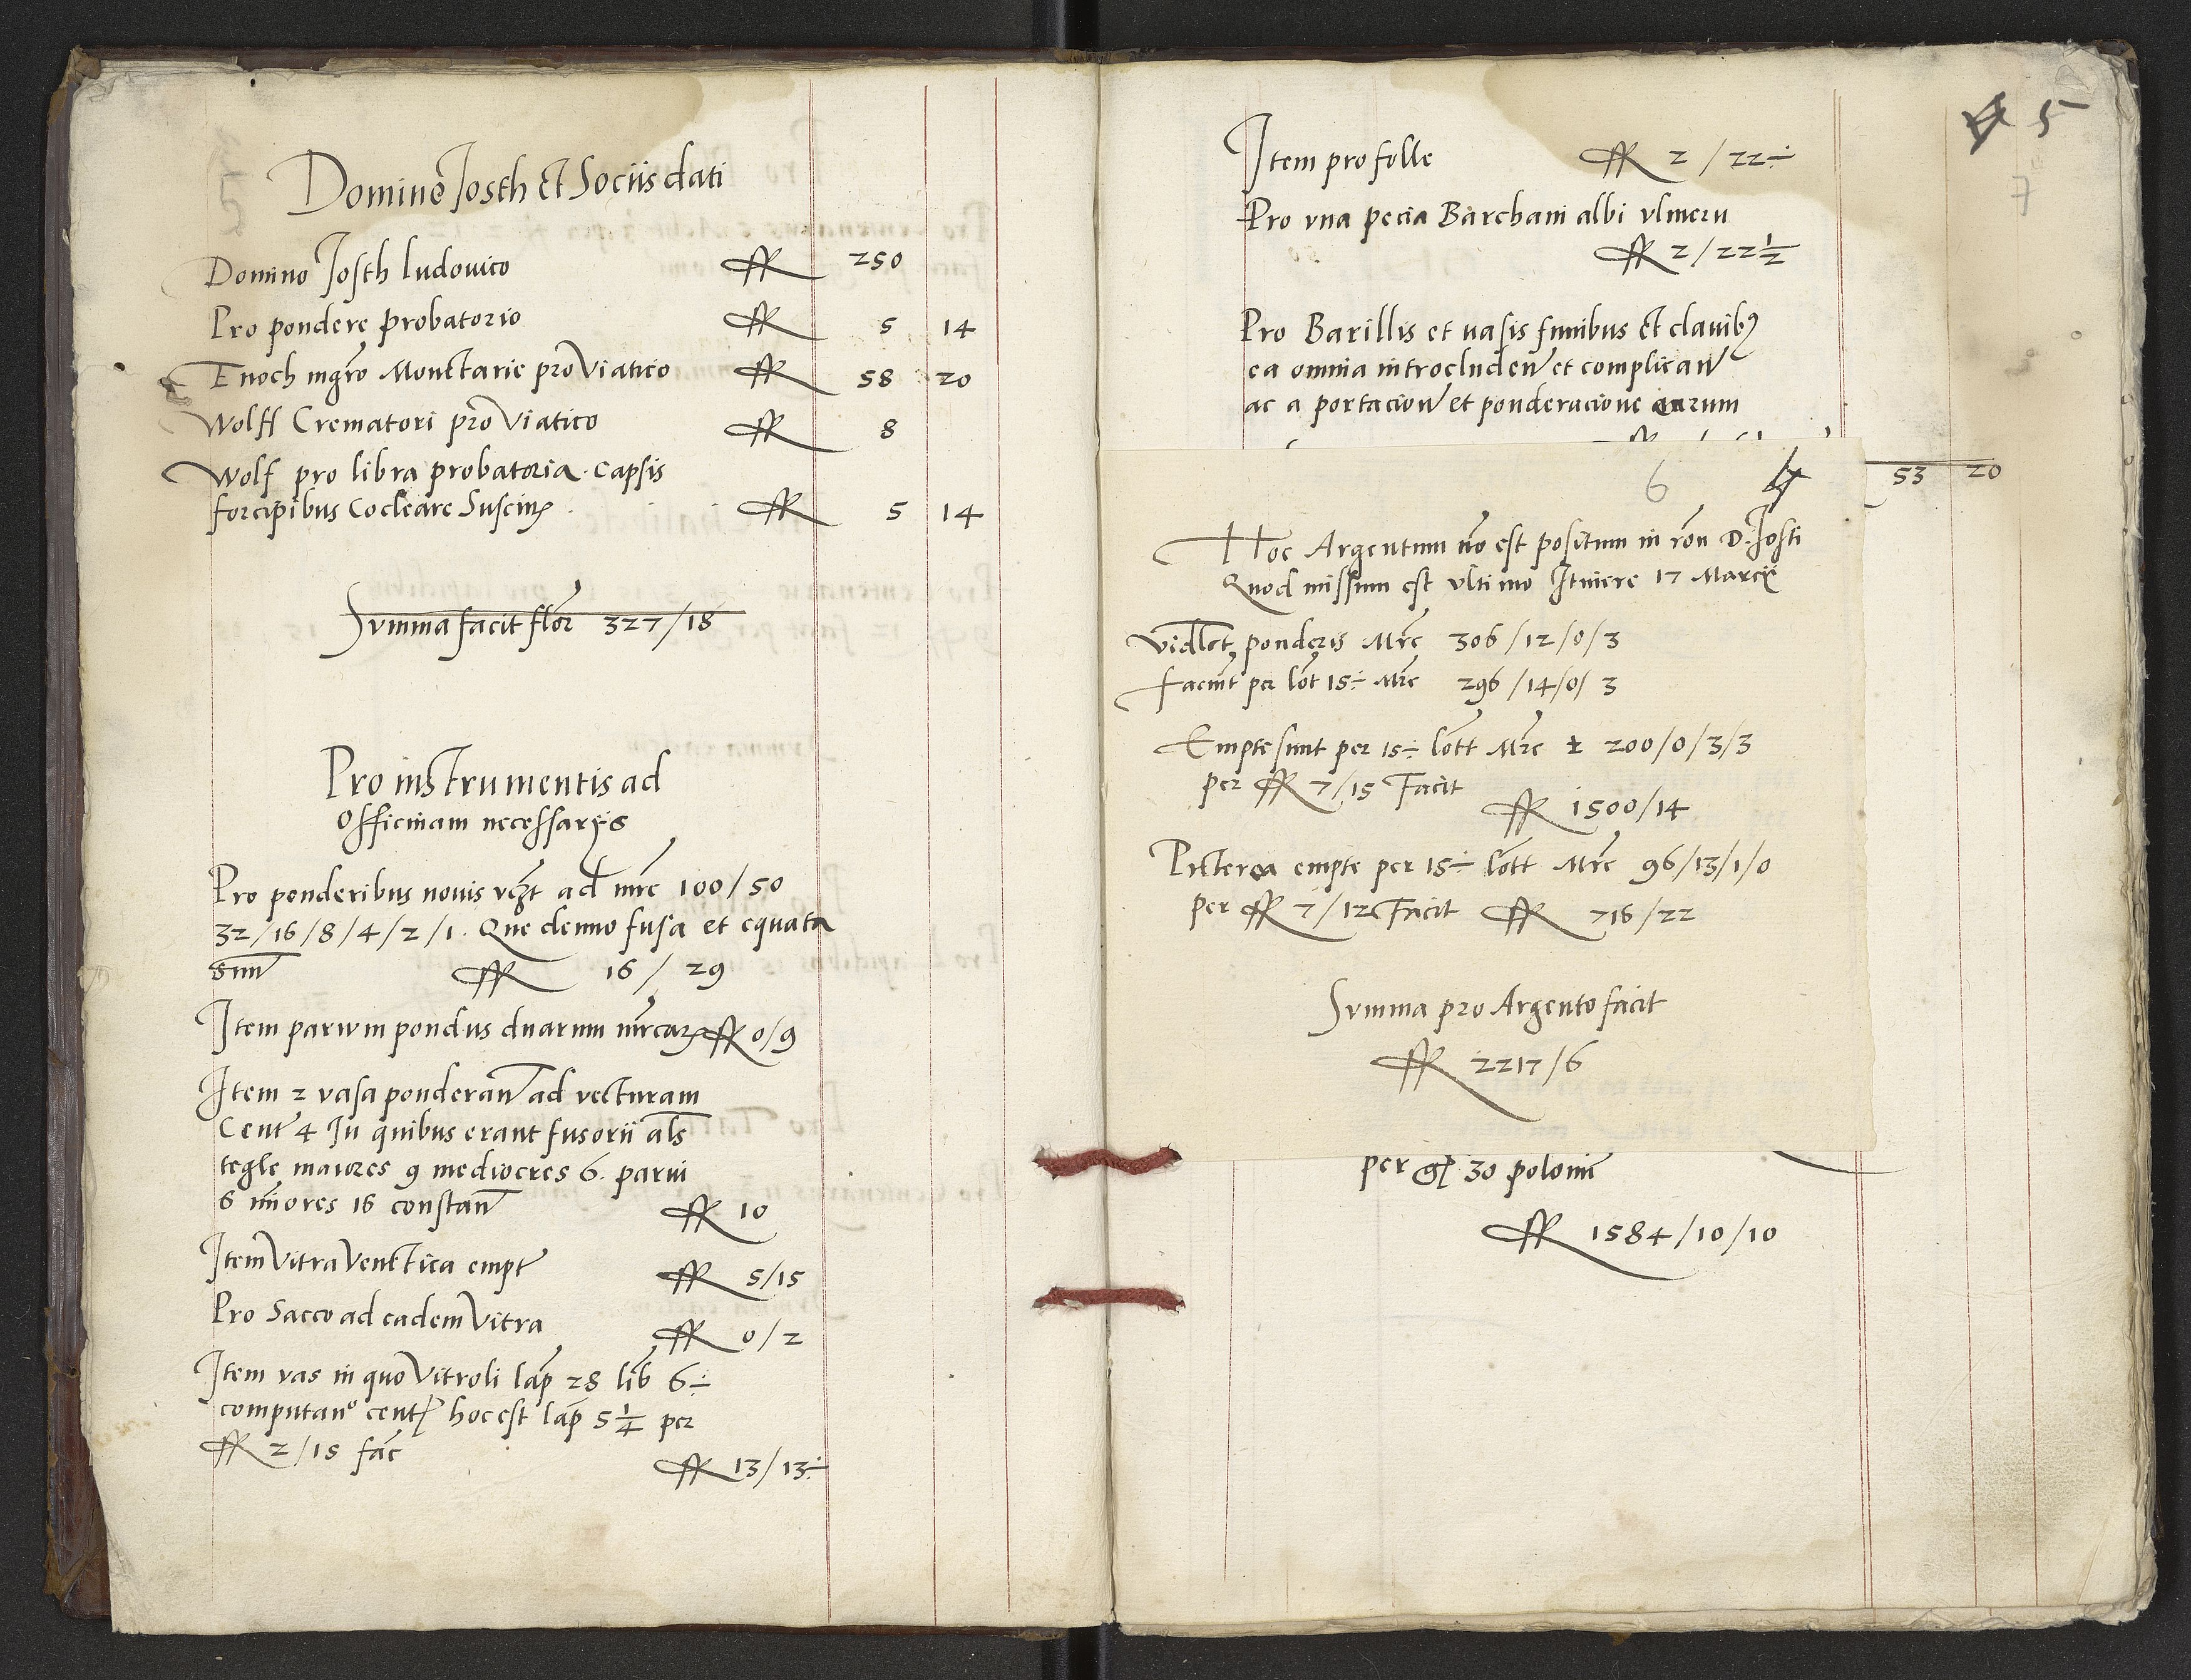 Domino Josth et Sociis dati
Domino Josth Ludovico ff 250
Pro pondere probatorio ff 5 14
Enoch mgro Monetarie pro Viatico ff 58 20
Wolff Crematori pro Viatico ff 8
Wolf pro libra probatoria. Capsis
forcipibus Cocleare ff 5 14
Summa facit flor 327/18
Pro instrumentis ad
Officinam necessarijs
Pro ponderibus nouis vzt ad mrc 100/50
32/16/8/4/2/1. Que denuo fusa et equata
sunt ff 16/29
Item paruum pondus duarum mrcarum ff 0/9
Item 2 vasa ponderan ad vecturam
Cent 4 In quibus erant fusorii als
tegle maiores 9 mediocres 6. parui
6 minores 16 constan ff 10
Item Vitra Venetica empt ff 5/15
Pro Sacco ad eadem Vitra
ff 0/2
Item vas in quo Vitroli lap 28 lib 6÷
computano cent hoc est lap 5 1/4 per
ff 2/15 fac ff 13/13÷
5
7
Item pro folle ff 2/22÷
Pro vna pecia Barchani albi vlmeru
ff 2/22 1/2
Pro Barillis et vasis funibus et clauibus
ea omnia introcluden et complican
ac a portacion et ponderacione earum
53 20
6 4
Hoc Argentum no est positum in ron D. Josti
Quod missum est vltimo Itinere 17 Marcii
Vidlet ponderis Mrc 306/12/0/3
faciunt per lot 15÷ Mrc 296/14/0/3
Empte sunt per 15÷ lott Mrc 200/0/3/3
per ff 7/15 Facit
ff 1500/14
Preterea empte per 15÷ lott Mrc 96/13/1/0
per ff 7/12 Facit ff 716/22
Summa pro Argento facit
ff 2217/6
per gr 30 polonic
ff 1584/10/10